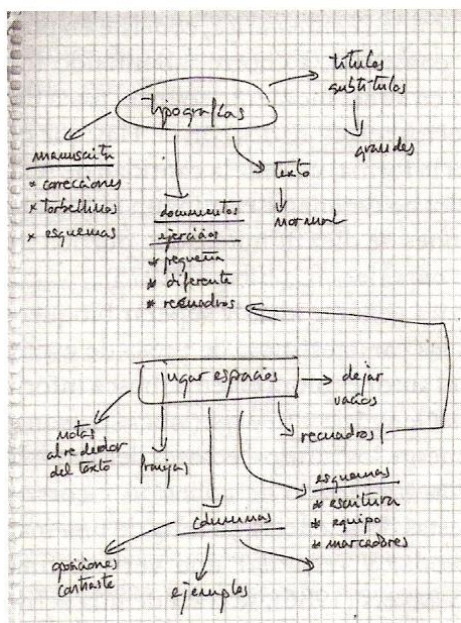 títulos
subtítulos
grandes
tipografías
manuscrita
* correcciones
* torbellinos
* esquemas
documentos
ejercicios
* pequeña
* diferente
* recuadros
texto
normal
jugar espacios
dejar
vacíos
recuadros
notas
alrededor
del texto
franjas
esquemas
* escritura
* equipo
* marcadores
columnas
oposiciones
contraste
ejemplos